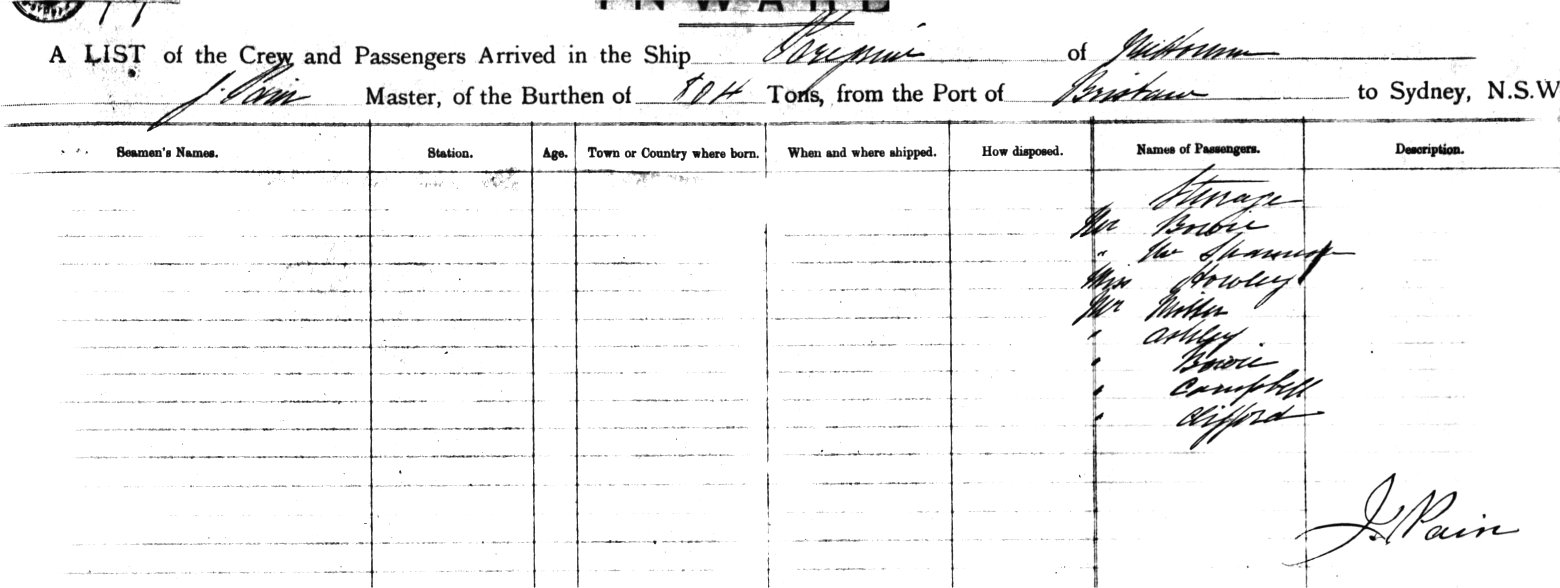 INWARD
A LIST of the Crew and Passengers Arrived in the Ship of Melbourne
J. Pain Master, of the Burthen of 804 Tons, from the Port of Brisbane to Sydney, N.S.W
Seamen's Names. Station. Age. Town or Country where born. When and where shipped. How disposed. Names of Passengers. Description.
Steerage
Mr Bowie
" Shannon
Miss Howley
Mr Miller
" Ashley
" Bowie
" Campbell
" Clifford
J. Pain